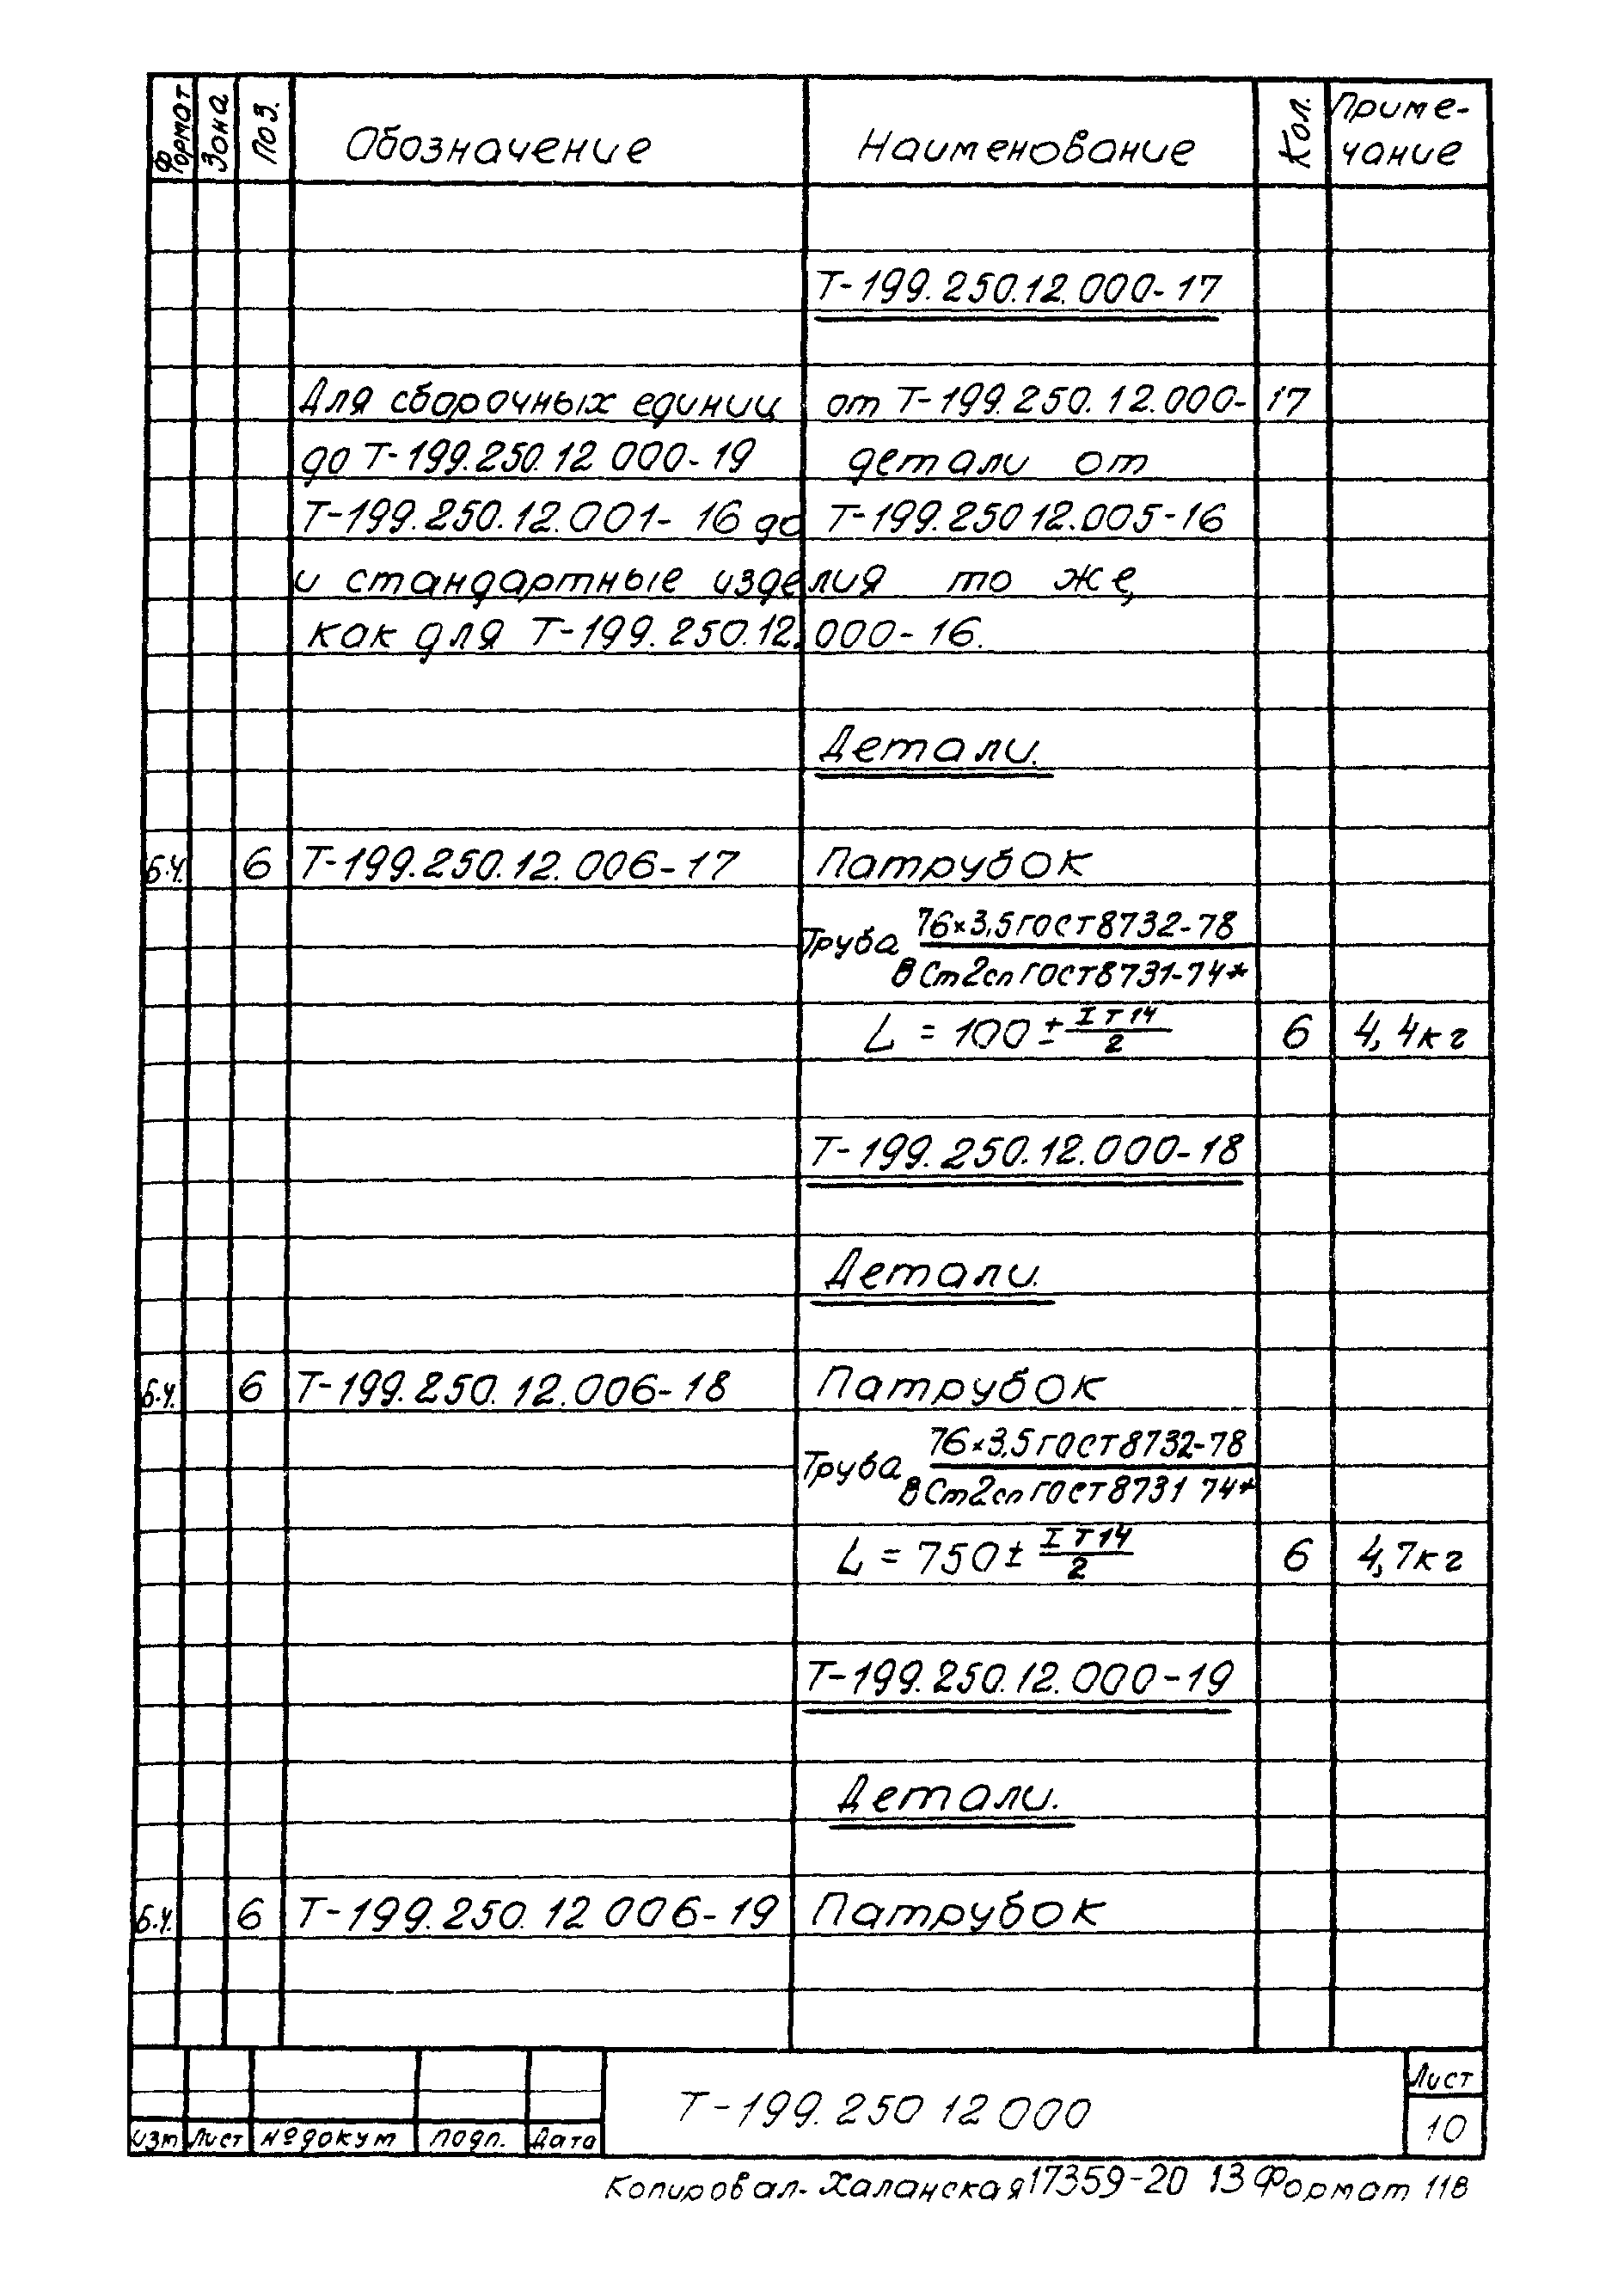 Формат Зона Поз. Обозначение Наименование Кол. Приме-
чание
Т-199.250.12.000-17
Для сборочных единиц от Т-199.250.12.000-17
до Т-199.250.12 000-19 детали от
Т-199.250.12.001-16 до Т-199.250 12.005-16
и стандартные изделия то же,
как для Т-199.250.12.000-16.
Детали.
б.ч. 6 Т-199.250.12.006-17 Патрубок
Труба 76×3,5 ГОСТ 8732-78
В Ст2сп ГОСТ 8731-74*
L = 100 ± IT14/2 6 4,4кг
Т-199.250.12.000-18
Детали.
б.ч. 6 Т-199.250.12.006-18 Патрубок
Труба 76×3,5 ГОСТ 8732-78
В Ст2сп ГОСТ 8731 74*
L = 750 ± IT14/2 6 4,7кг
Т-199.250.12.000-19
Детали.
б.ч. 6 Т-199.250.12 006-19 Патрубок
Т-199.250 12 000
Лист
10
изм Лист № докум подп. Дата
Копировал- Халанская 17359-20 13 Формат 11В